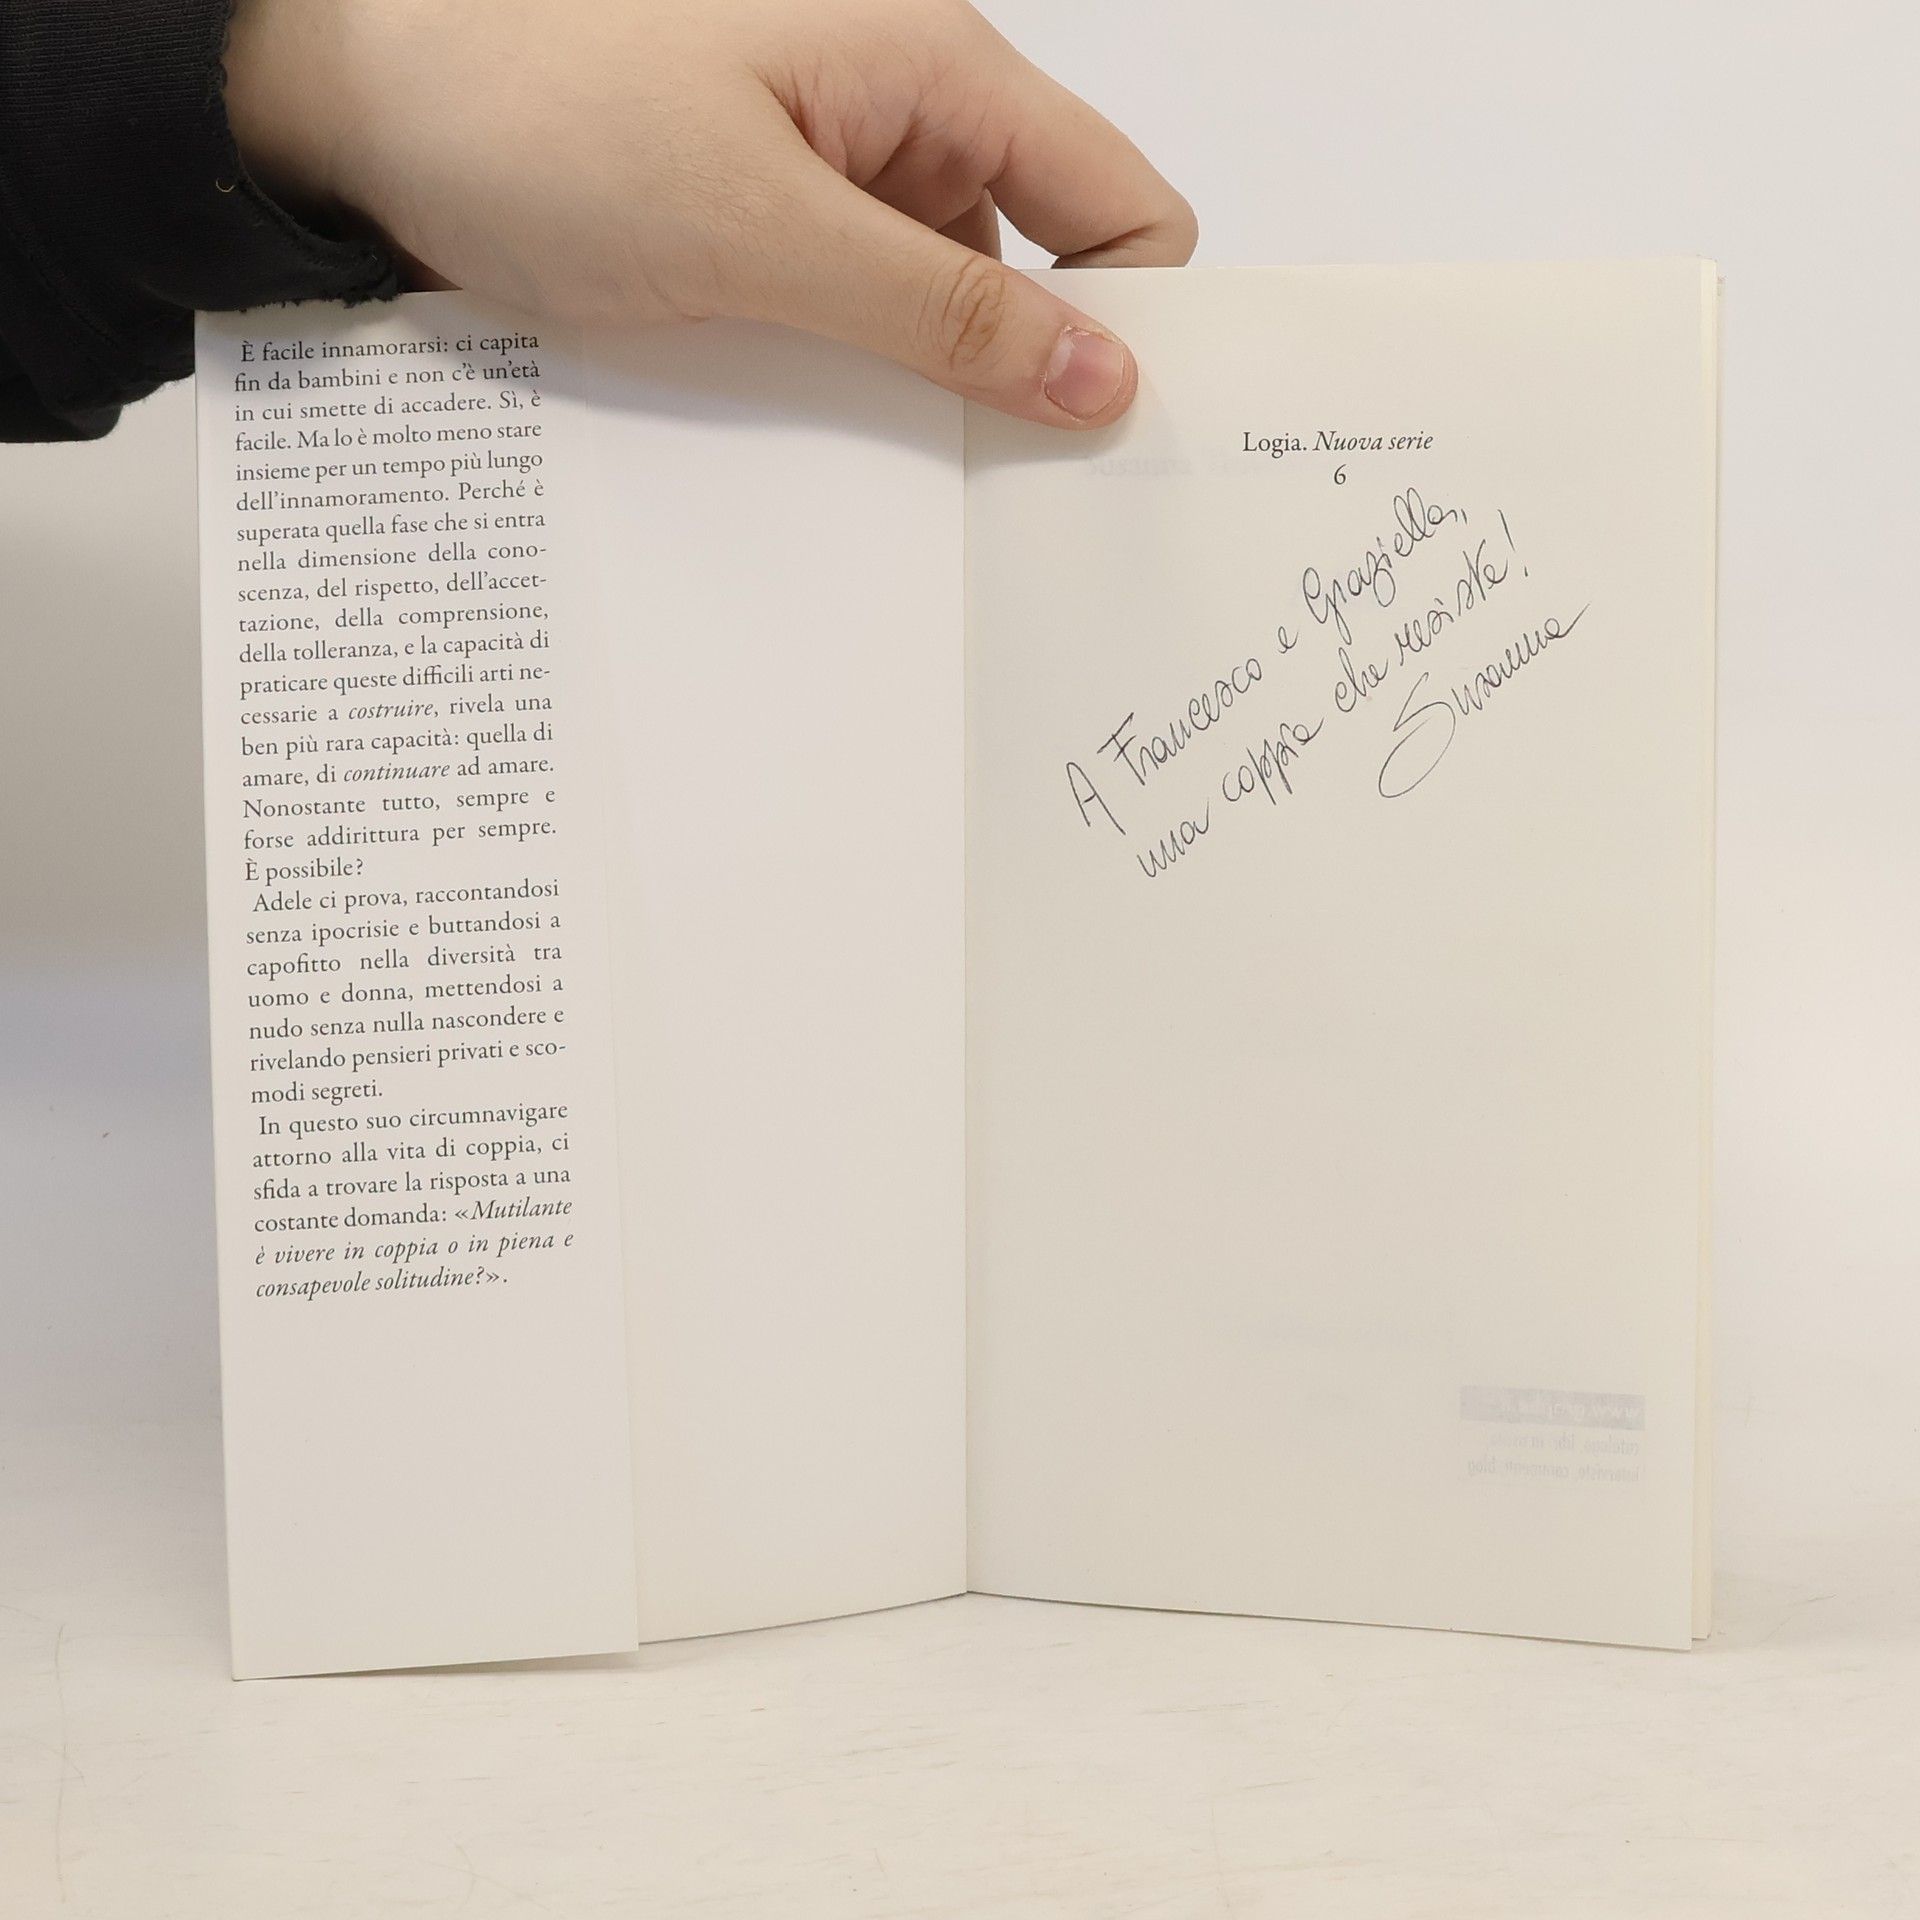 È facile innamorarsi: ci capita
fin da bambini e non c'è un'età
in cui smette di accadere. Sì, è
facile. Ma lo è molto meno stare
insieme per un tempo più lungo
dell'innamoramento. Perché è
superata quella fase che si entra
nella dimensione della cono-
scenza, del rispetto, dell'accet-
tazione, della comprensione,
della tolleranza, e la capacità di
praticare queste difficili arti ne-
cessarie a costruire, rivela una
ben più rara capacità: quella di
amare, di continuare ad amare.
Nonostante tutto, sempre e
forse addirittura per sempre.
È possibile?
Adele ci prova, raccontandosi
senza ipocrisie e buttandosi a
capofitto nella diversità tra
uomo e donna, mettendosi a
nudo senza nulla nascondere e
rivelando pensieri privati e sco-
modi segreti.
In questo suo circumnavigare
attorno alla vita di coppia, ci
sfida a trovare la risposta a una
costante domanda: «Mutilante
è vivere in coppia o in piena e
consapevole solitudine?».
Logia. Nuova serie
6
A Francesco e Graziella,
una coppia che resiste!
Susanna